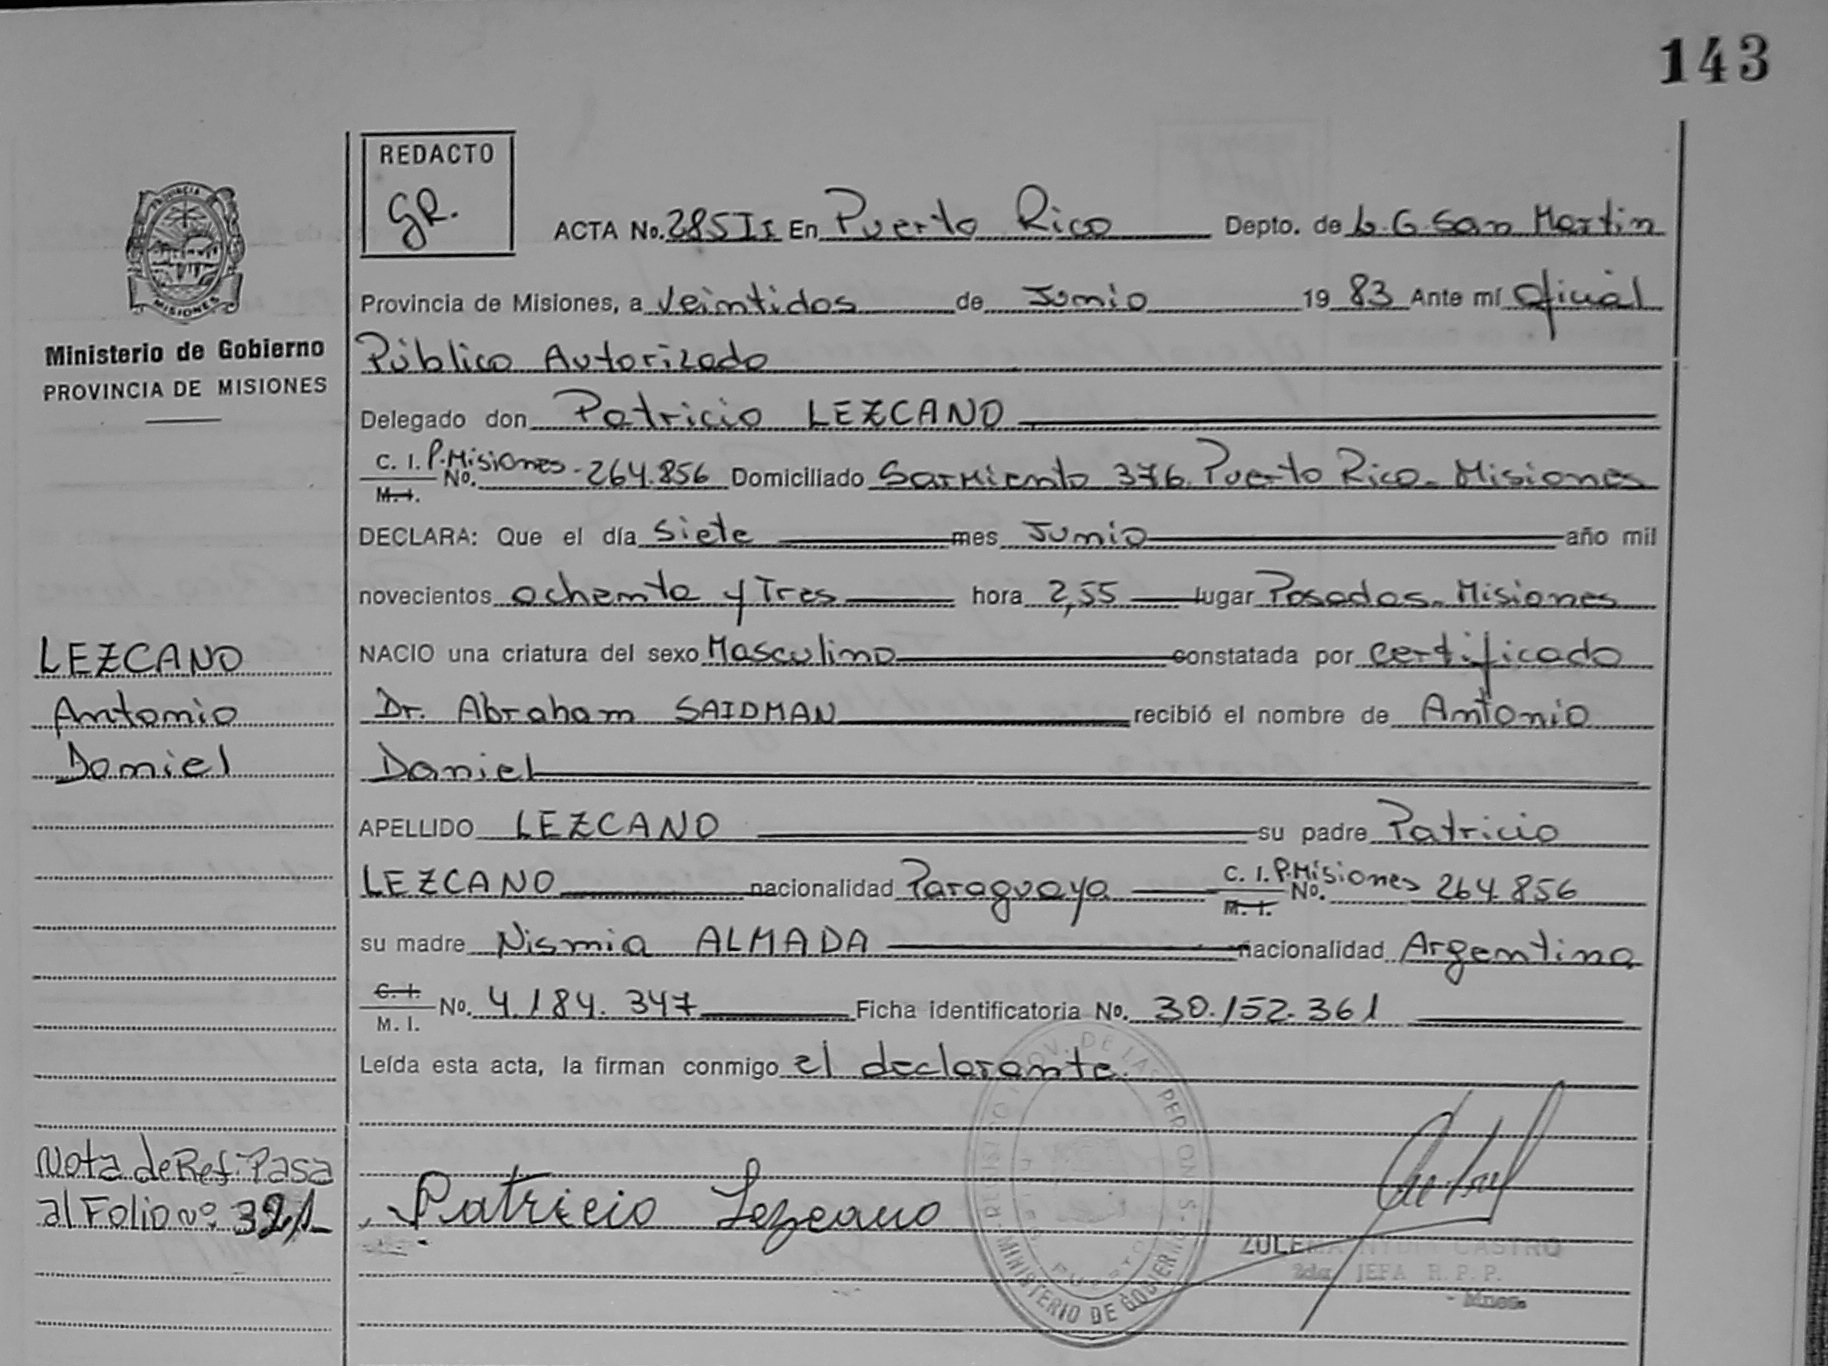 143
REDACTO
GR.
ACTA No. 285 II En Puerto Rico Depto. de L.G. San Martin
Provincia de Misiones, a veintidos de Junio 19 83 Ante mí Oficial
Público Autorizado
Delegado don Patricio LEZCANO
C. I. P. Misiones - 264.856 Domiciliado Sarmiento 376. Puerto Rico - Misiones
M. I. No.
DECLARA: Que el día Siete mes Junio año mil
novecientos ochenta y Tres hora 2,55 lugar Posadas - Misiones
NACIO una criatura del sexo Masculino constatada por certificado
Dr. Abraham SAIDMAN recibió el nombre de Antonio
Daniel
APELLIDO LEZCANO su padre Patricio
LEZCANO nacionalidad Paraguaya C. I. P. Misiones 264.856
M. I. No.
su madre Nismia ALMADA nacionalidad Argentina
C. I. No. 4.184.347 Ficha identificatoria No. 30.152.361
M. I.
Leída esta acta, la firman conmigo el declarante.
Patricio Lezcano
ZULEMA NYDIA CASTRO
2da. JEFA R. P. P.
- Mnes.
REGISTRO PROV. DE LAS PERSONAS
MINISTERIO DE GOBIERNO
PROVINCIA
MISIONES
Ministerio de Gobierno
PROVINCIA DE MISIONES
LEZCANO
Antonio
Daniel
Nota de Ref. Pasa
al Folio nº 321